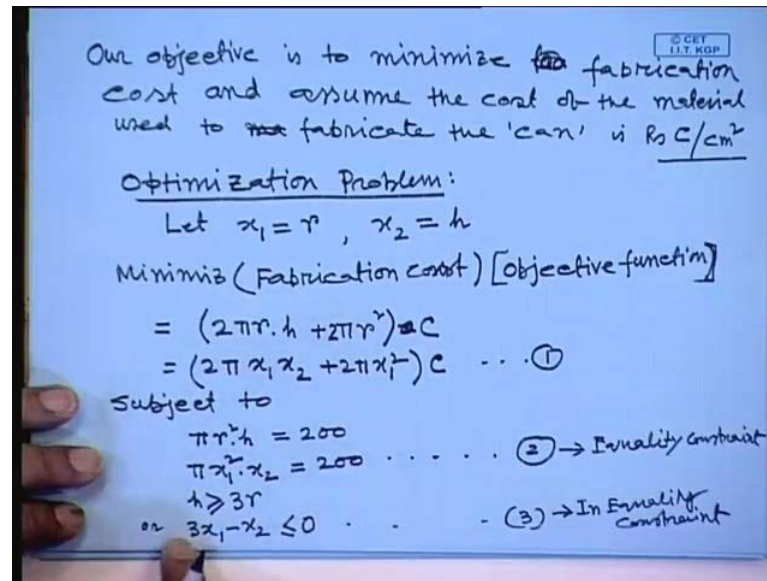 © CET
I.I.T. KGP
Our objective is to minimize fabrication
cost and assume the cost of the material
used to fabricate the 'can' is Rs C/cm²
Optimization Problem:
Let x₁ = r , x₂ = h
Minimiz (Fabrication cost) [objective function]
= (2πr.h + 2πr²) C
= (2π x₁ x₂ + 2πx₁²) C ... ①
Subject to
πr².h = 200
πx₁².x₂ = 200 ...... ② → Equality constraint
h ≥ 3r
or 3x₁ - x₂ ≤ 0 . . - (3) → In Equality
constraint